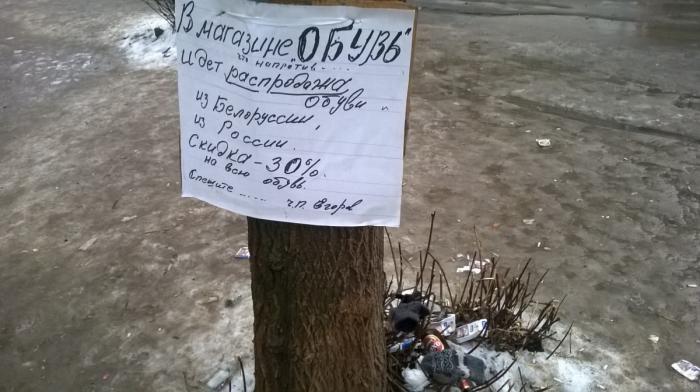 В магазине "ОБУВЬ"
что напротив....
идет распродажа
обуви
из Белоруссии,
из России.
Скидка - 30%.
на всю обувь.
Спешите..... ч.п. Егоров